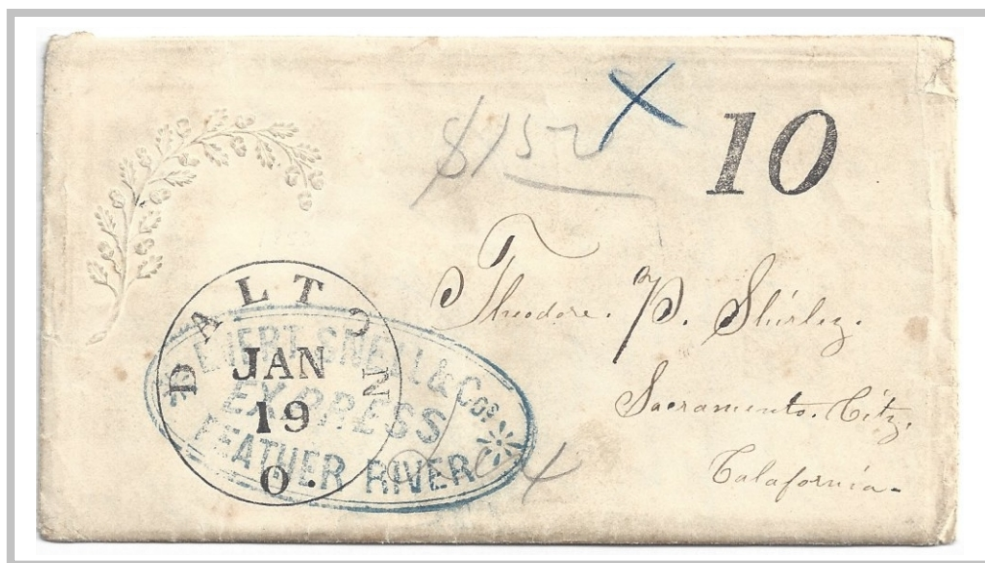 X
10
Theodore. P. Shirley.
Sacramento. City.
Calafornia.
DALTON
JAN
19
O.
EVERTS SNELL & Cos
EXPRESS
FEATHER RIVER